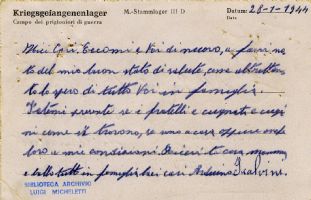 Kriegsgefangenenlager
Campo dei prigionieri di guerra
M.-Stammlager III D
Datum: 28-1-1944
Data
Miei Cari. Eccomi a Voi di nuovo, a farvi no
to del mio buon stato di salute, come altrettan
to lo spero di tutto Voi in famiglia.
se i fratelli e cognati e cugi
ni come si trovano, se sono a casa oppure anche
loro a mie condizioni. Ricevi tu cara mamma
e tutti in famiglia baci cari
BIBLIOTECA ARCHIVIO
LUIGI MICHELETTI